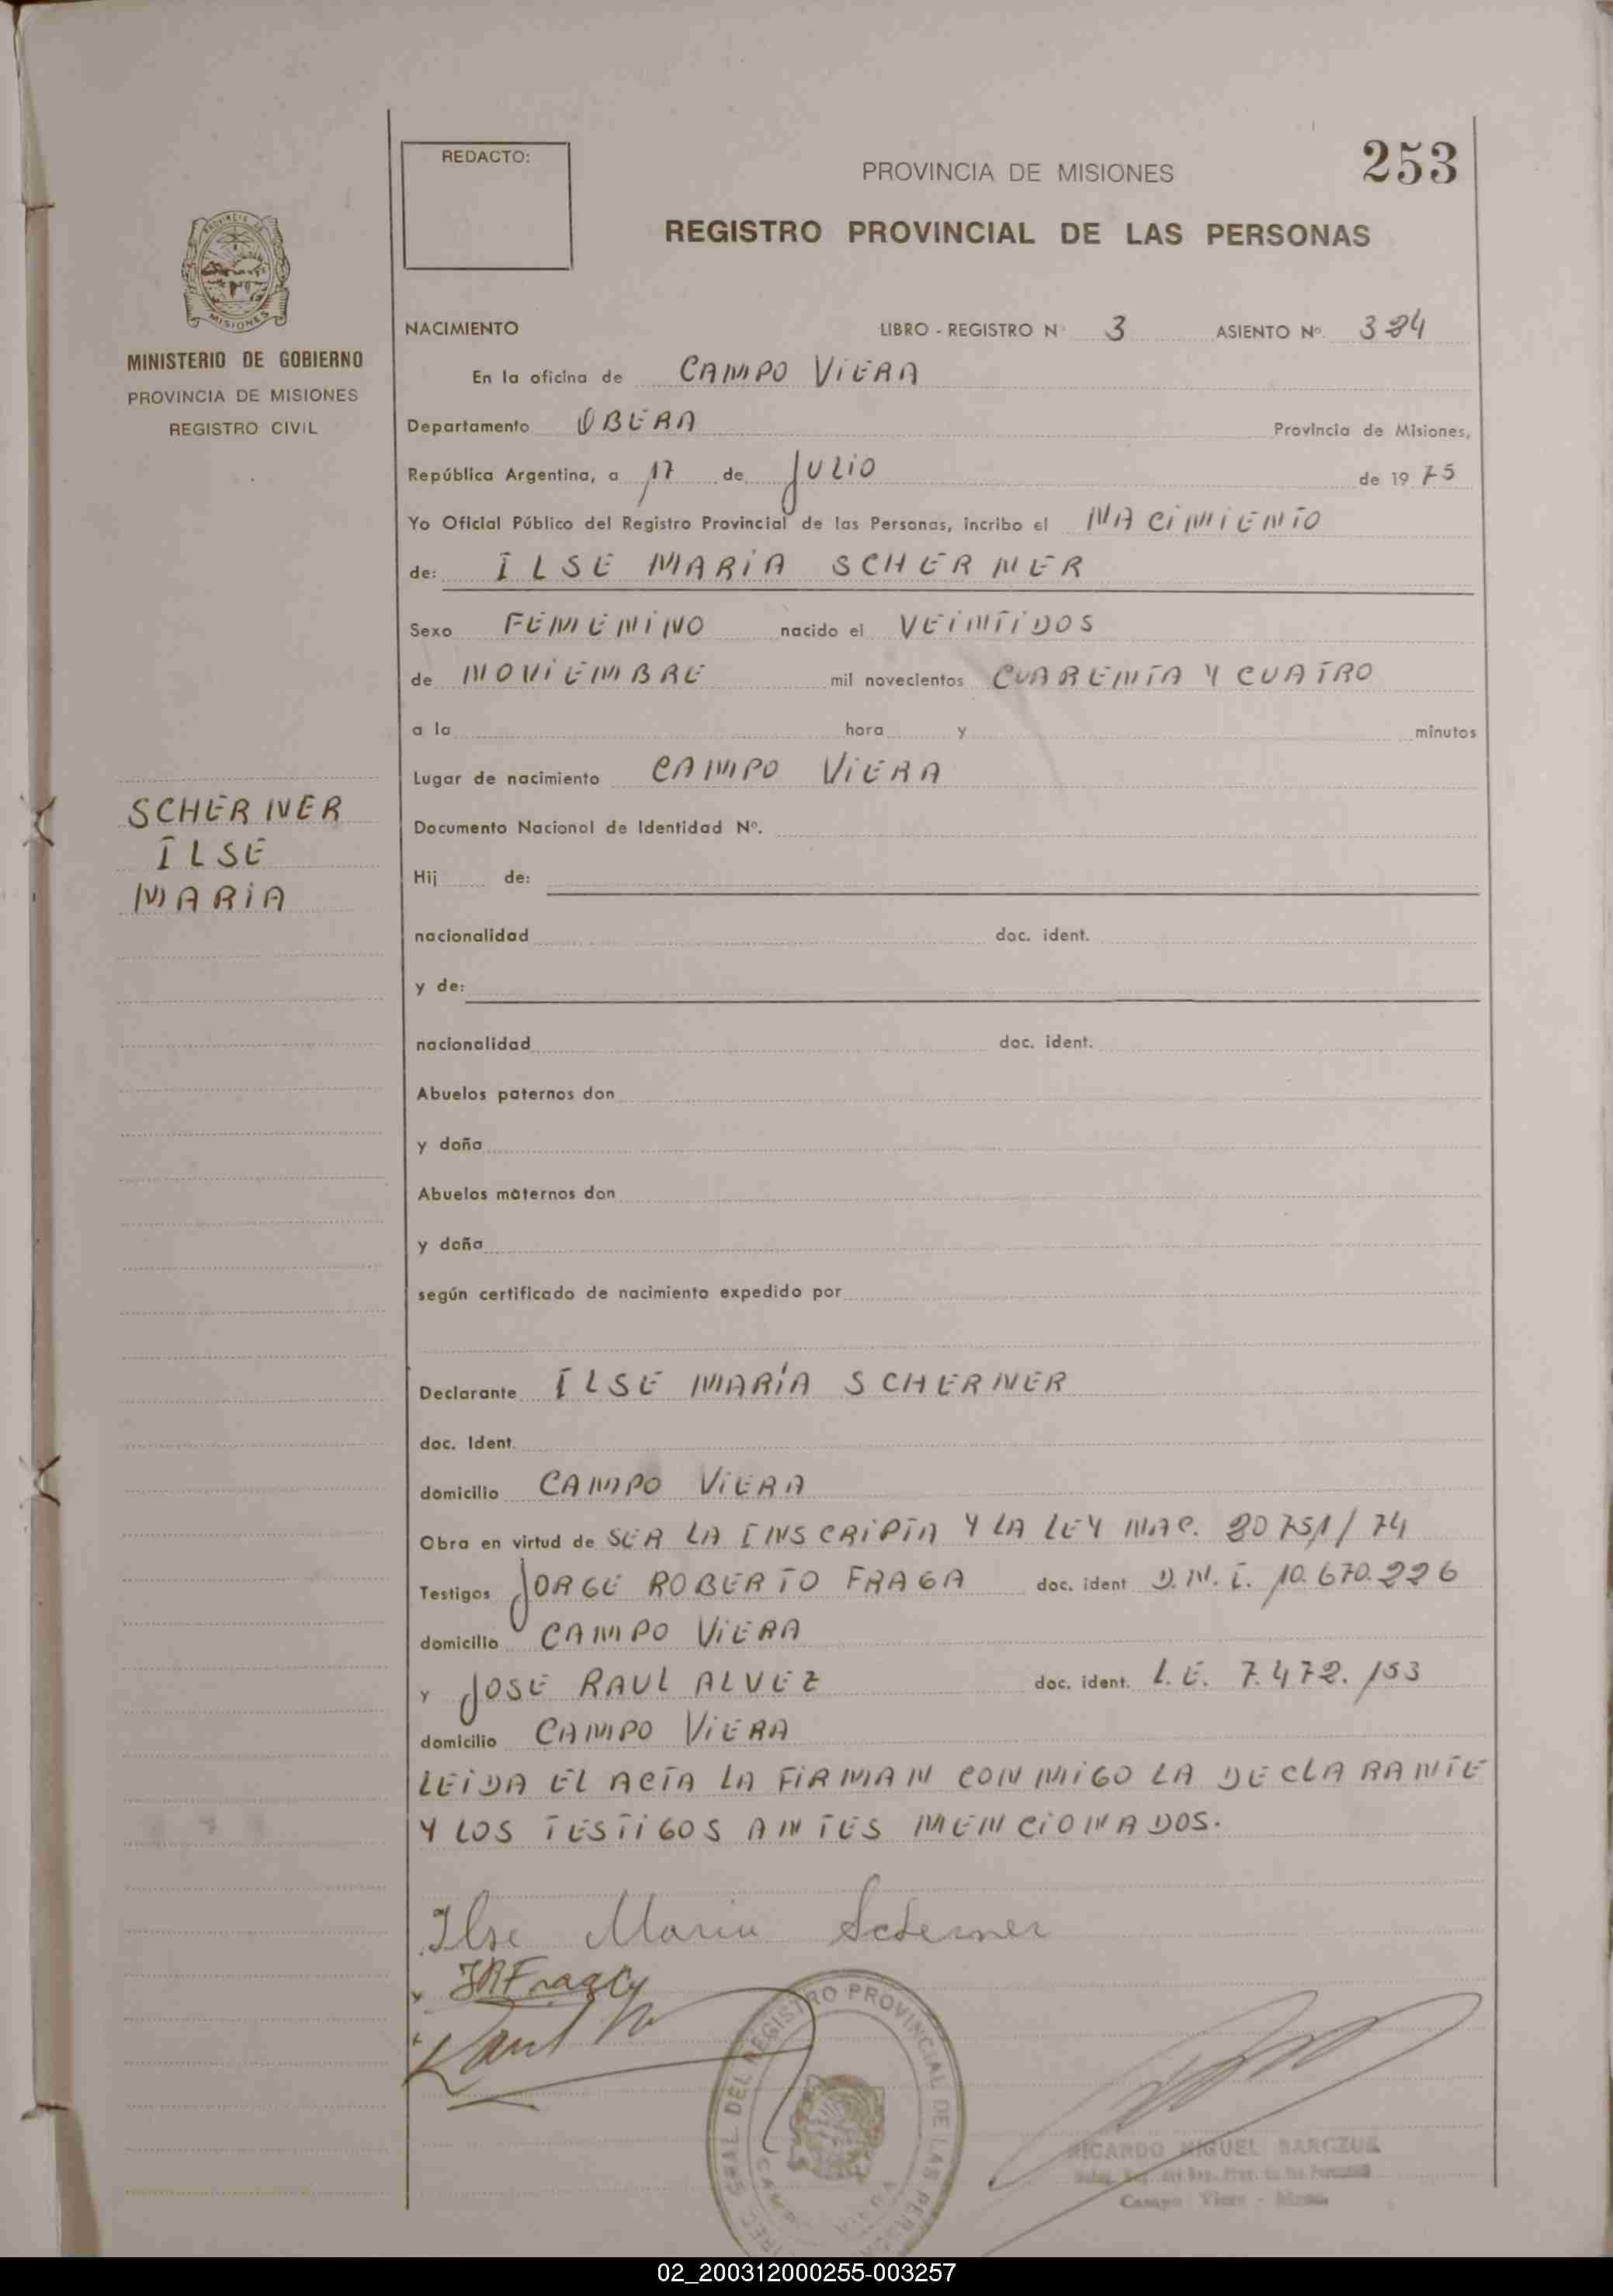 REDACTO:
PROVINCIA DE MISIONES
253
REGISTRO PROVINCIAL DE LAS PERSONAS
PROVINCIA DE
MISIONES
MINISTERIO DE GOBIERNO
PROVINCIA DE MISIONES
REGISTRO CIVIL
NACIMIENTO LIBRO - REGISTRO Nº 3 ASIENTO Nº. 384
En la oficina de CAMPO VIERA
Departamento OBERA Provincia de Misiones,
República Argentina, a 17 de JULIO de 1975
Yo Oficial Público del Registro Provincial de las Personas, incribo el NACIMIENTO
de: ILSE MARIA SCHERNER
Sexo FEMENINO nacido el VEINTIDOS
de NOVIEMBRE mil novecientos CUARENTA Y CUATRO
a la hora y minutos
Lugar de nacimiento CAMPO VIERA
SCHERNER
ILSE
MARIA
Documento Nacional de Identidad Nº.
Hij de:
nacionalidad doc. ident.
y de:
nacionalidad doc. ident.
Abuelos paternos don
y doña
Abuelos maternos don
y doña
según certificado de nacimiento expedido por
Declarante ILSE MARÍA SCHERNER
doc. Ident.
domicilio CAMPO VIERA
Obra en virtud de SER LA INSCRIPTA Y LA LEY NAC. 20751/74
Testigos JORGE ROBERTO FRAGA doc. ident D.N.I. 10.670.226
domicilio CAMPO VIERA
y JOSE RAUL ALVEZ doc. ident. L.E. 7.472.153
domicilio CAMPO VIERA
LEIDA EL ACTA LA FIRMAN CONMIGO LA DECLARANTE
Y LOS TESTIGOS ANTES MENCIONADOS.
Ilse Maria Scherner
JRFraga
Raul
REGISTRO PROVINCIAL DE LAS
RICARDO MIGUEL BARCZUK
Campo Viera - Mnes
02_200312000255-003257